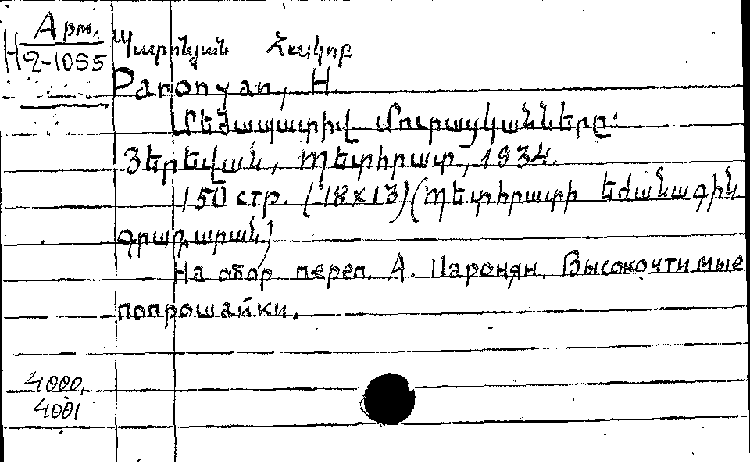 Арм.
Н 2-1095
Պարոնյան Հակոբ
Paronyan, H.
Մեծապատիվ մուրացկանները։
Յերեվան, Պետհրատ, 1934.
150 стр. (18x13) (Պետհրատի եժանագին
գրադարան)
На обор. перев. А. Паронян. Высокочтимые
попрошайки.
4000,
4001